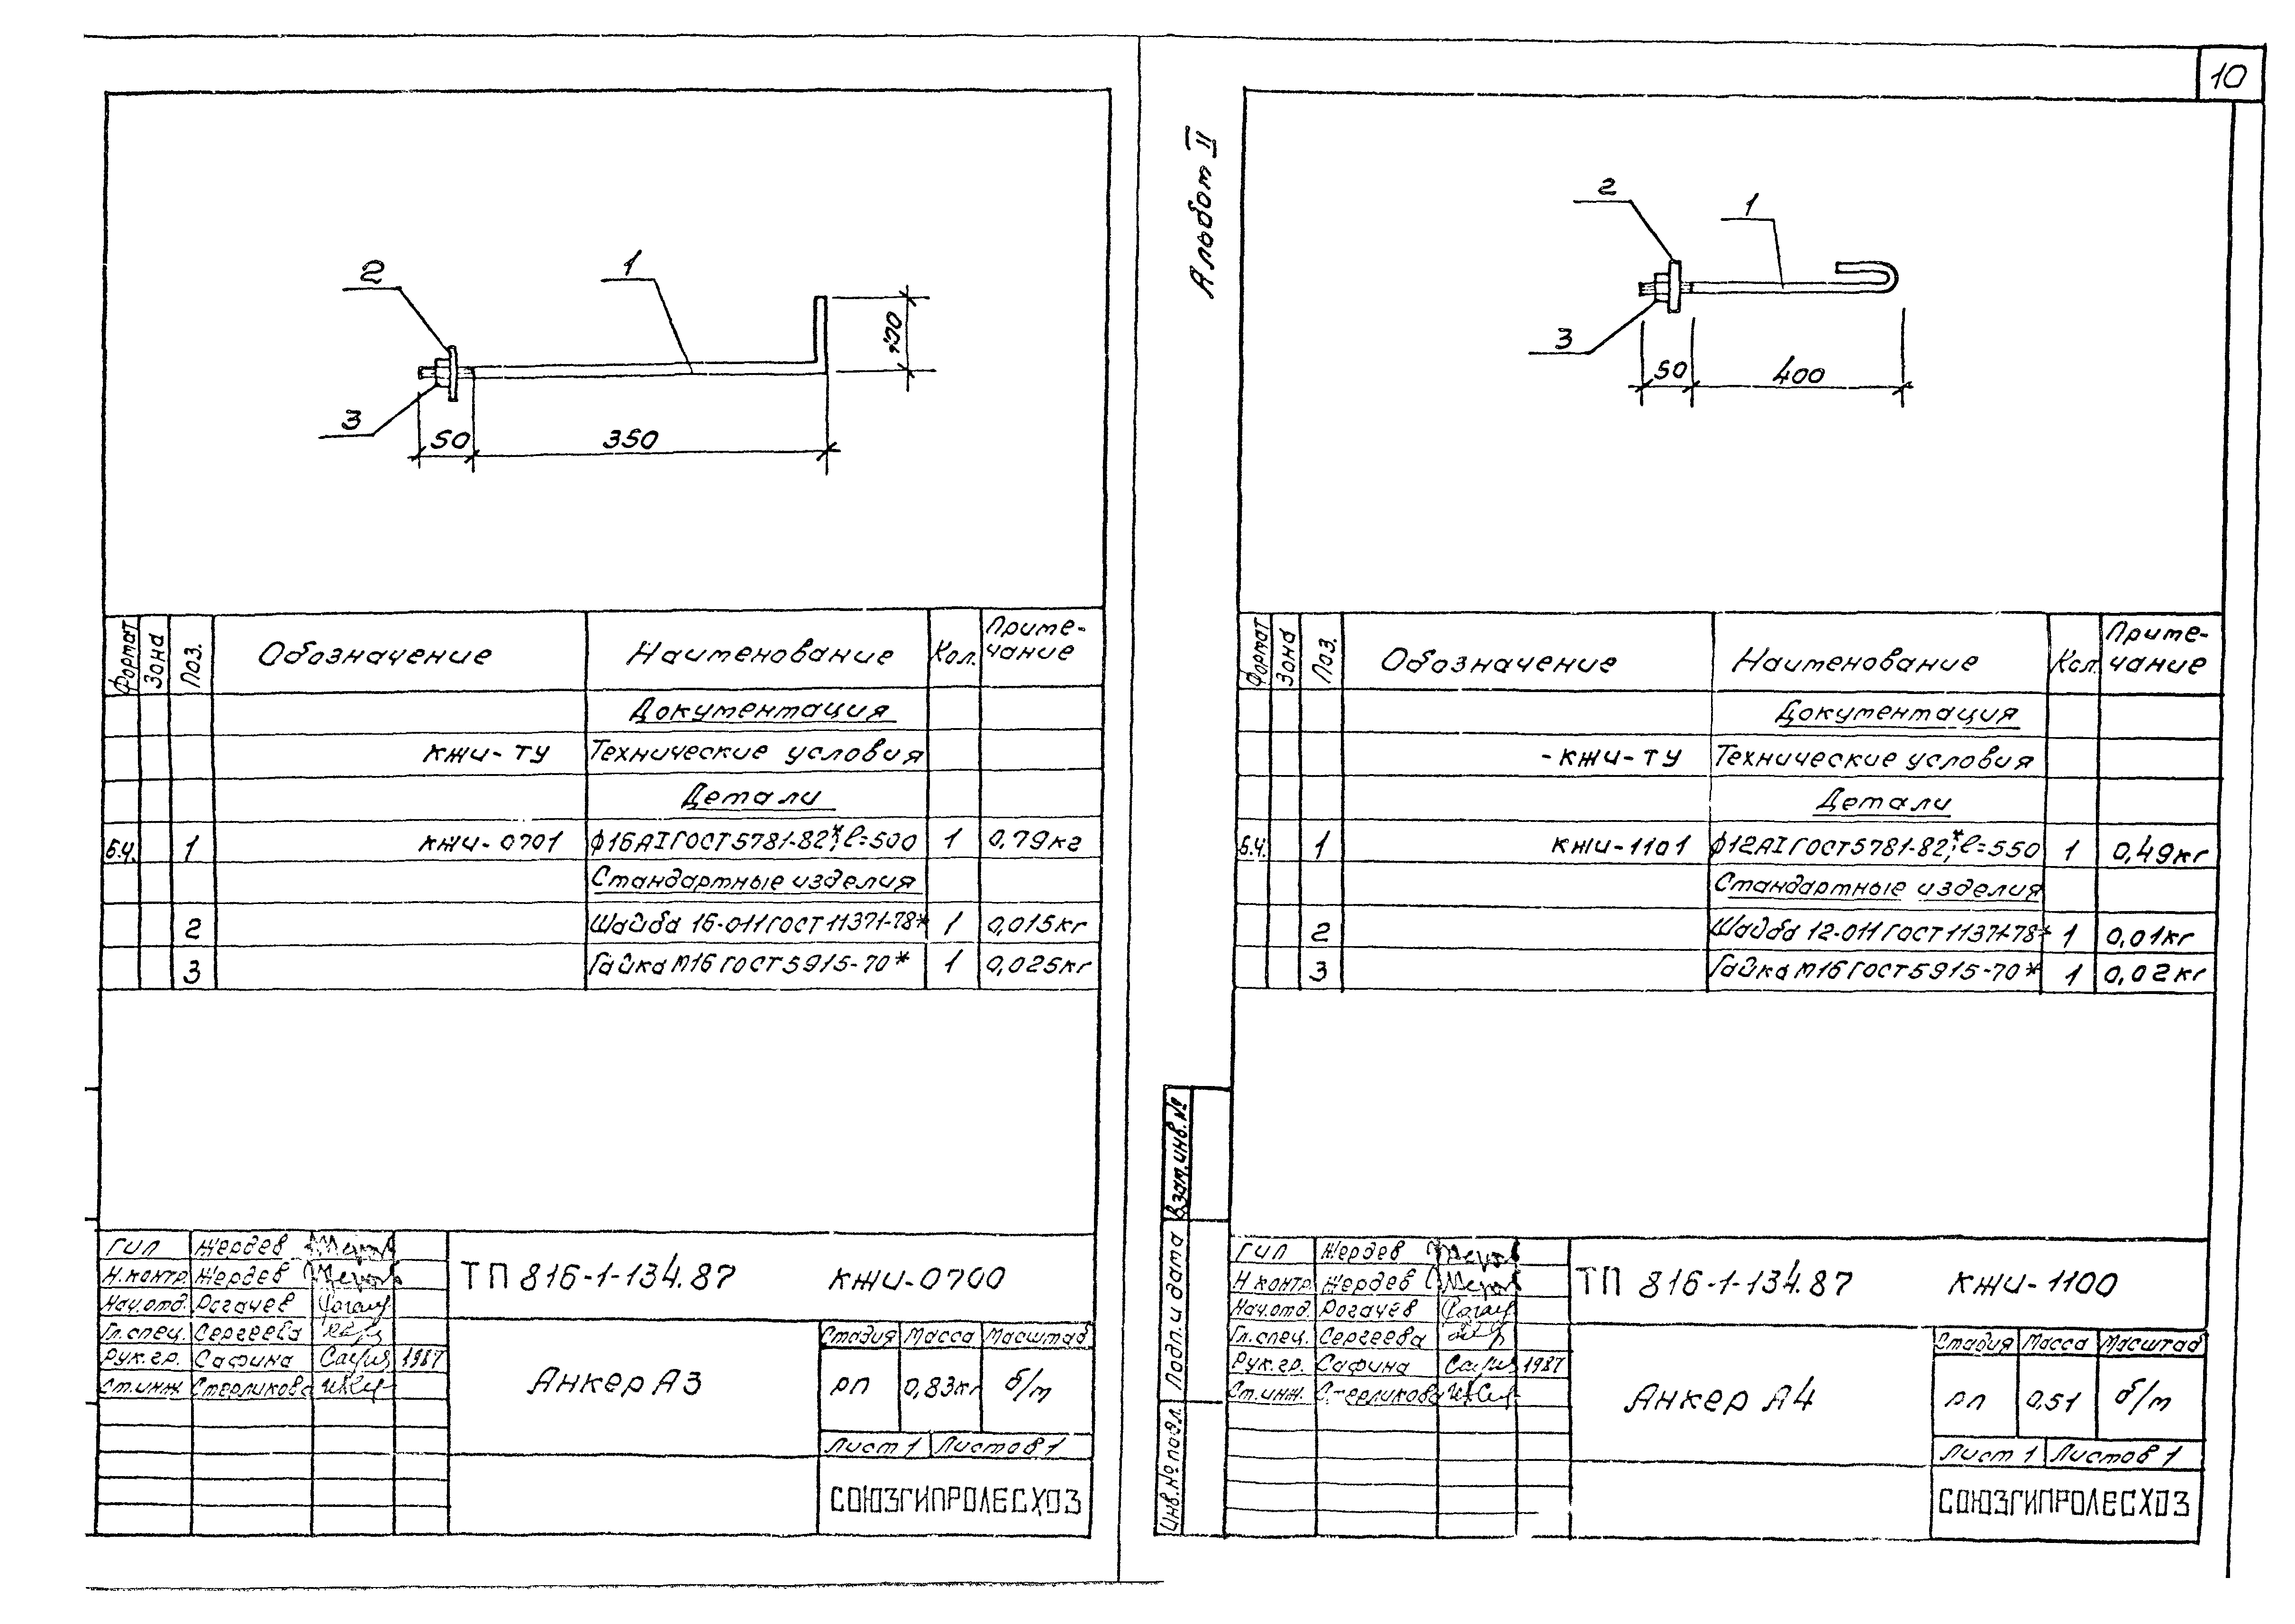 10
Альбом II
2
1
3
50
350
100
Формат Зона Поз. Обозначение Наименование Кол. Примечание
Документация
КЖИ-ТУ Технические условия
Детали
Б.Ч. 1 КЖИ-0701 ф16АI ГОСТ 5781-82*, ℓ=500 1 0,79кг
Стандартные изделия
2 Шайба 16-011 ГОСТ 11371-78* 1 0,015кг
3 Гайка М16 ГОСТ 5915-70* 1 0,025кг
ГИП Жердев
Н.контр. Жердев
Нач.отд. Рогачев
Гл.спец. Сергеева
Рук.гр. Сафина 1987
Ст.инж. Стерликова
ТП 816-1-134.87 КЖИ-0700
Анкер А3
Стадия Масса Масштаб
РП 0,83кг б/м
Лист 1 Листов 1
СОЮЗГИПРОЛЕСХОЗ
2
1
3
50
400
Формат Зона Поз. Обозначение Наименование Кол. Примечание
Документация
-КЖИ-ТУ Технические условия
Детали
Б.Ч. 1 КЖИ-1101 ф12АI ГОСТ 5781-82*, ℓ=550 1 0,49кг
Стандартные изделия
2 Шайба 12-011 ГОСТ 11371-78* 1 0,01кг
3 Гайка М16 ГОСТ 5915-70* 1 0,02кг
Взам.инв.№
Подп. и дата
Инв.№ подл.
ГИП Жердев
Н.контр. Жердев
Нач.отд. Рогачев
Гл.спец. Сергеева
Рук.гр. Сафина 1987
Ст.инж. Стерликова
ТП 816-1-134.87 КЖИ-1100
Анкер А4
Стадия Масса Масштаб
РП 0,51 б/м
Лист 1 Листов 1
СОЮЗГИПРОЛЕСХОЗ